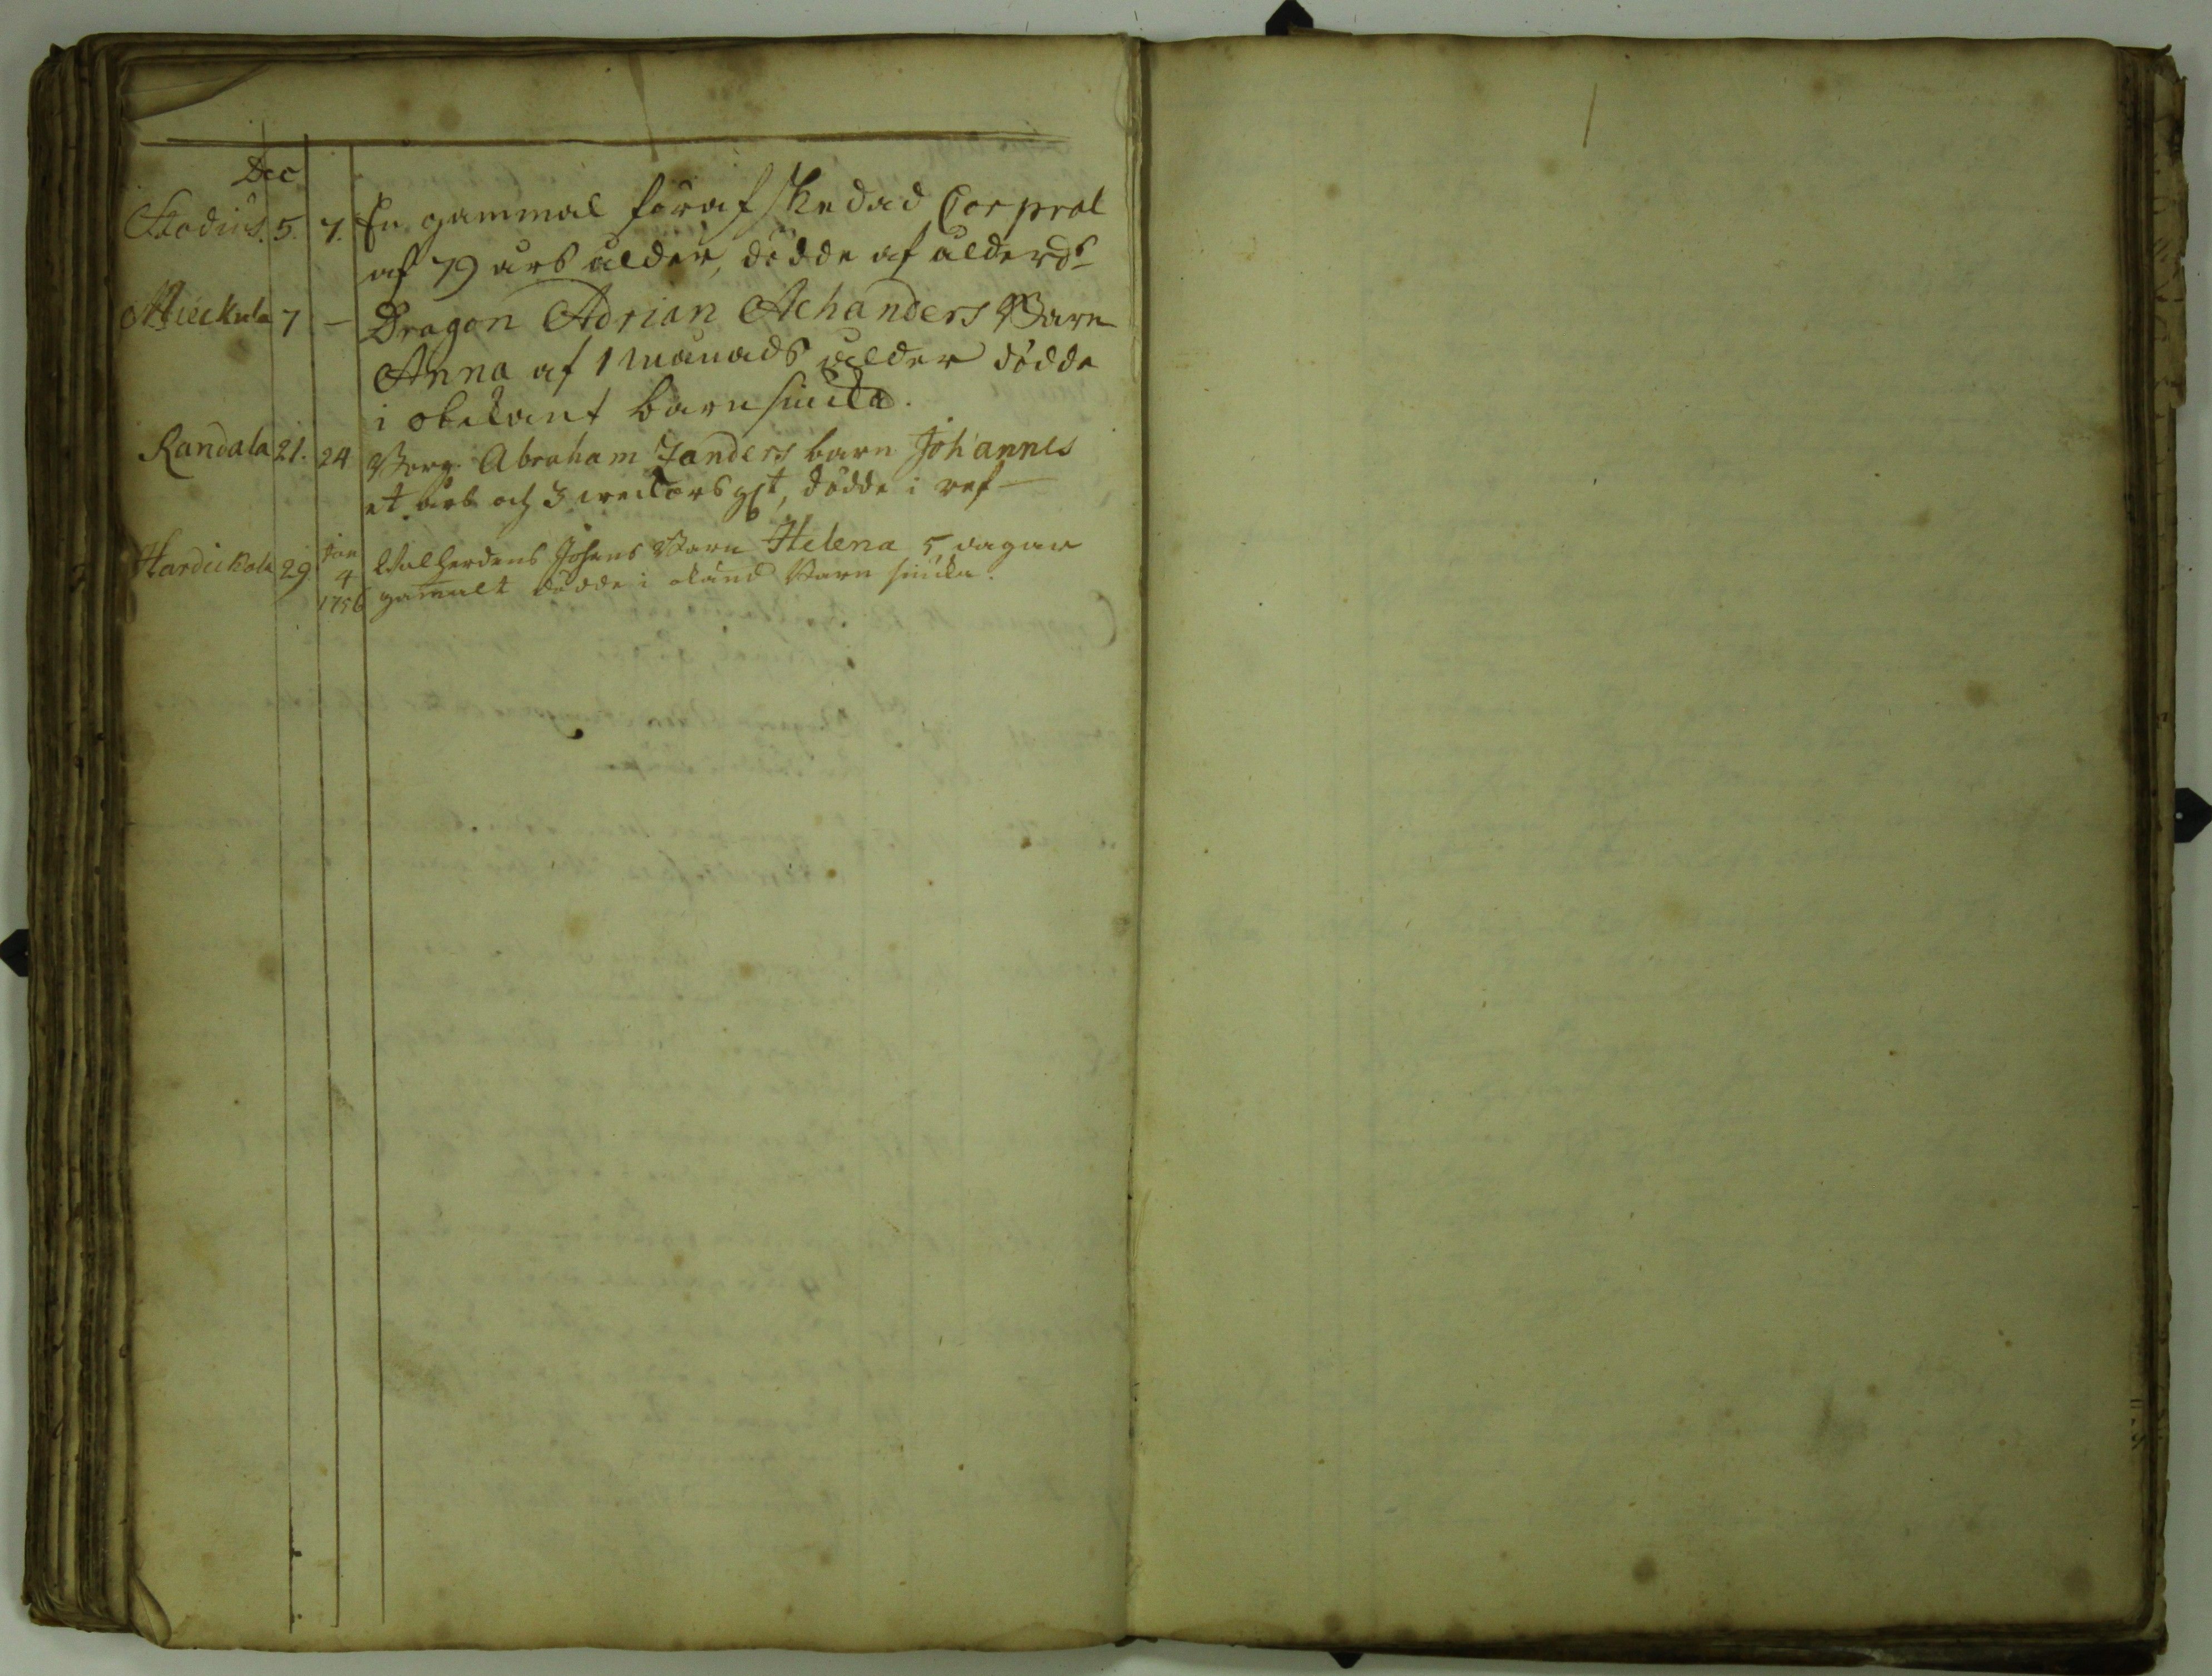 Dec
Stodius. 5. 7. En gammal för afskedad Corpral
af 79 års ålder, dödde af ålderds
7 — Dragon Adrian Achanders Barn
Anna af 1 månads ålder dödde
i obekant barnsiuka.
Randala 21. 24 Abraham Zanders barn Johannes
et års och 3 weckors g:lt, dödde i
Hardickala 29 Jan 4 1756 Walherdens Johans Barn Helena 5 dagar
gamalt dödde i okänd Barn siuka.